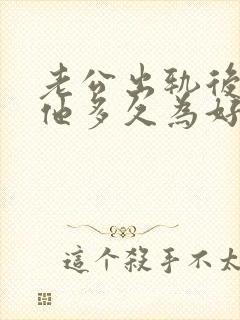 老公出轨後
他多久為好
這个殺手不太